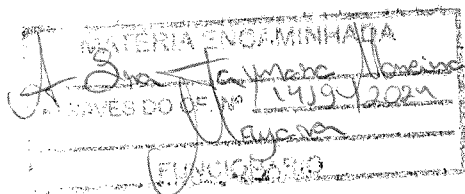 MATÉRIA ENCAMINHADA
A Sra Taymara
ATRAVÉS DO OF. Nº 14/94/2024
Nayara
FUNCIONÁRIO